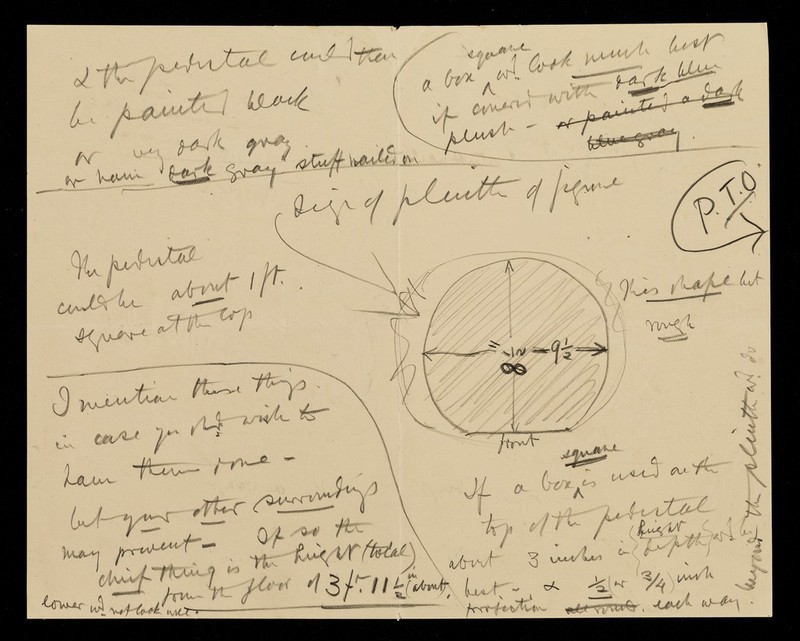 & the pedestal could then
be painted black
or very dark gray
or have dark gray stuff nailed on
a box square wd. look much best
if covered with dark blue
plush - or painted a dark
blue gray.
P.T.O.
Size of plinth of figure
The pedestal
could be about 1 ft.
square at the top
This shape but
rough
9½
8
front
I mention these things
in case you shd. wish to
have them done -
but your other surroundings
may prevent - If so the
chief thing is the height (total)
from the floor of 3 ft. 11½ in about.
lower wd. not look well.
If a box is square used on the
top of the pedestal
about 3 inches in height depth wd. be
best - & ½ (or ¾) inch
projection all round each way.
beyond the plinth wd. do